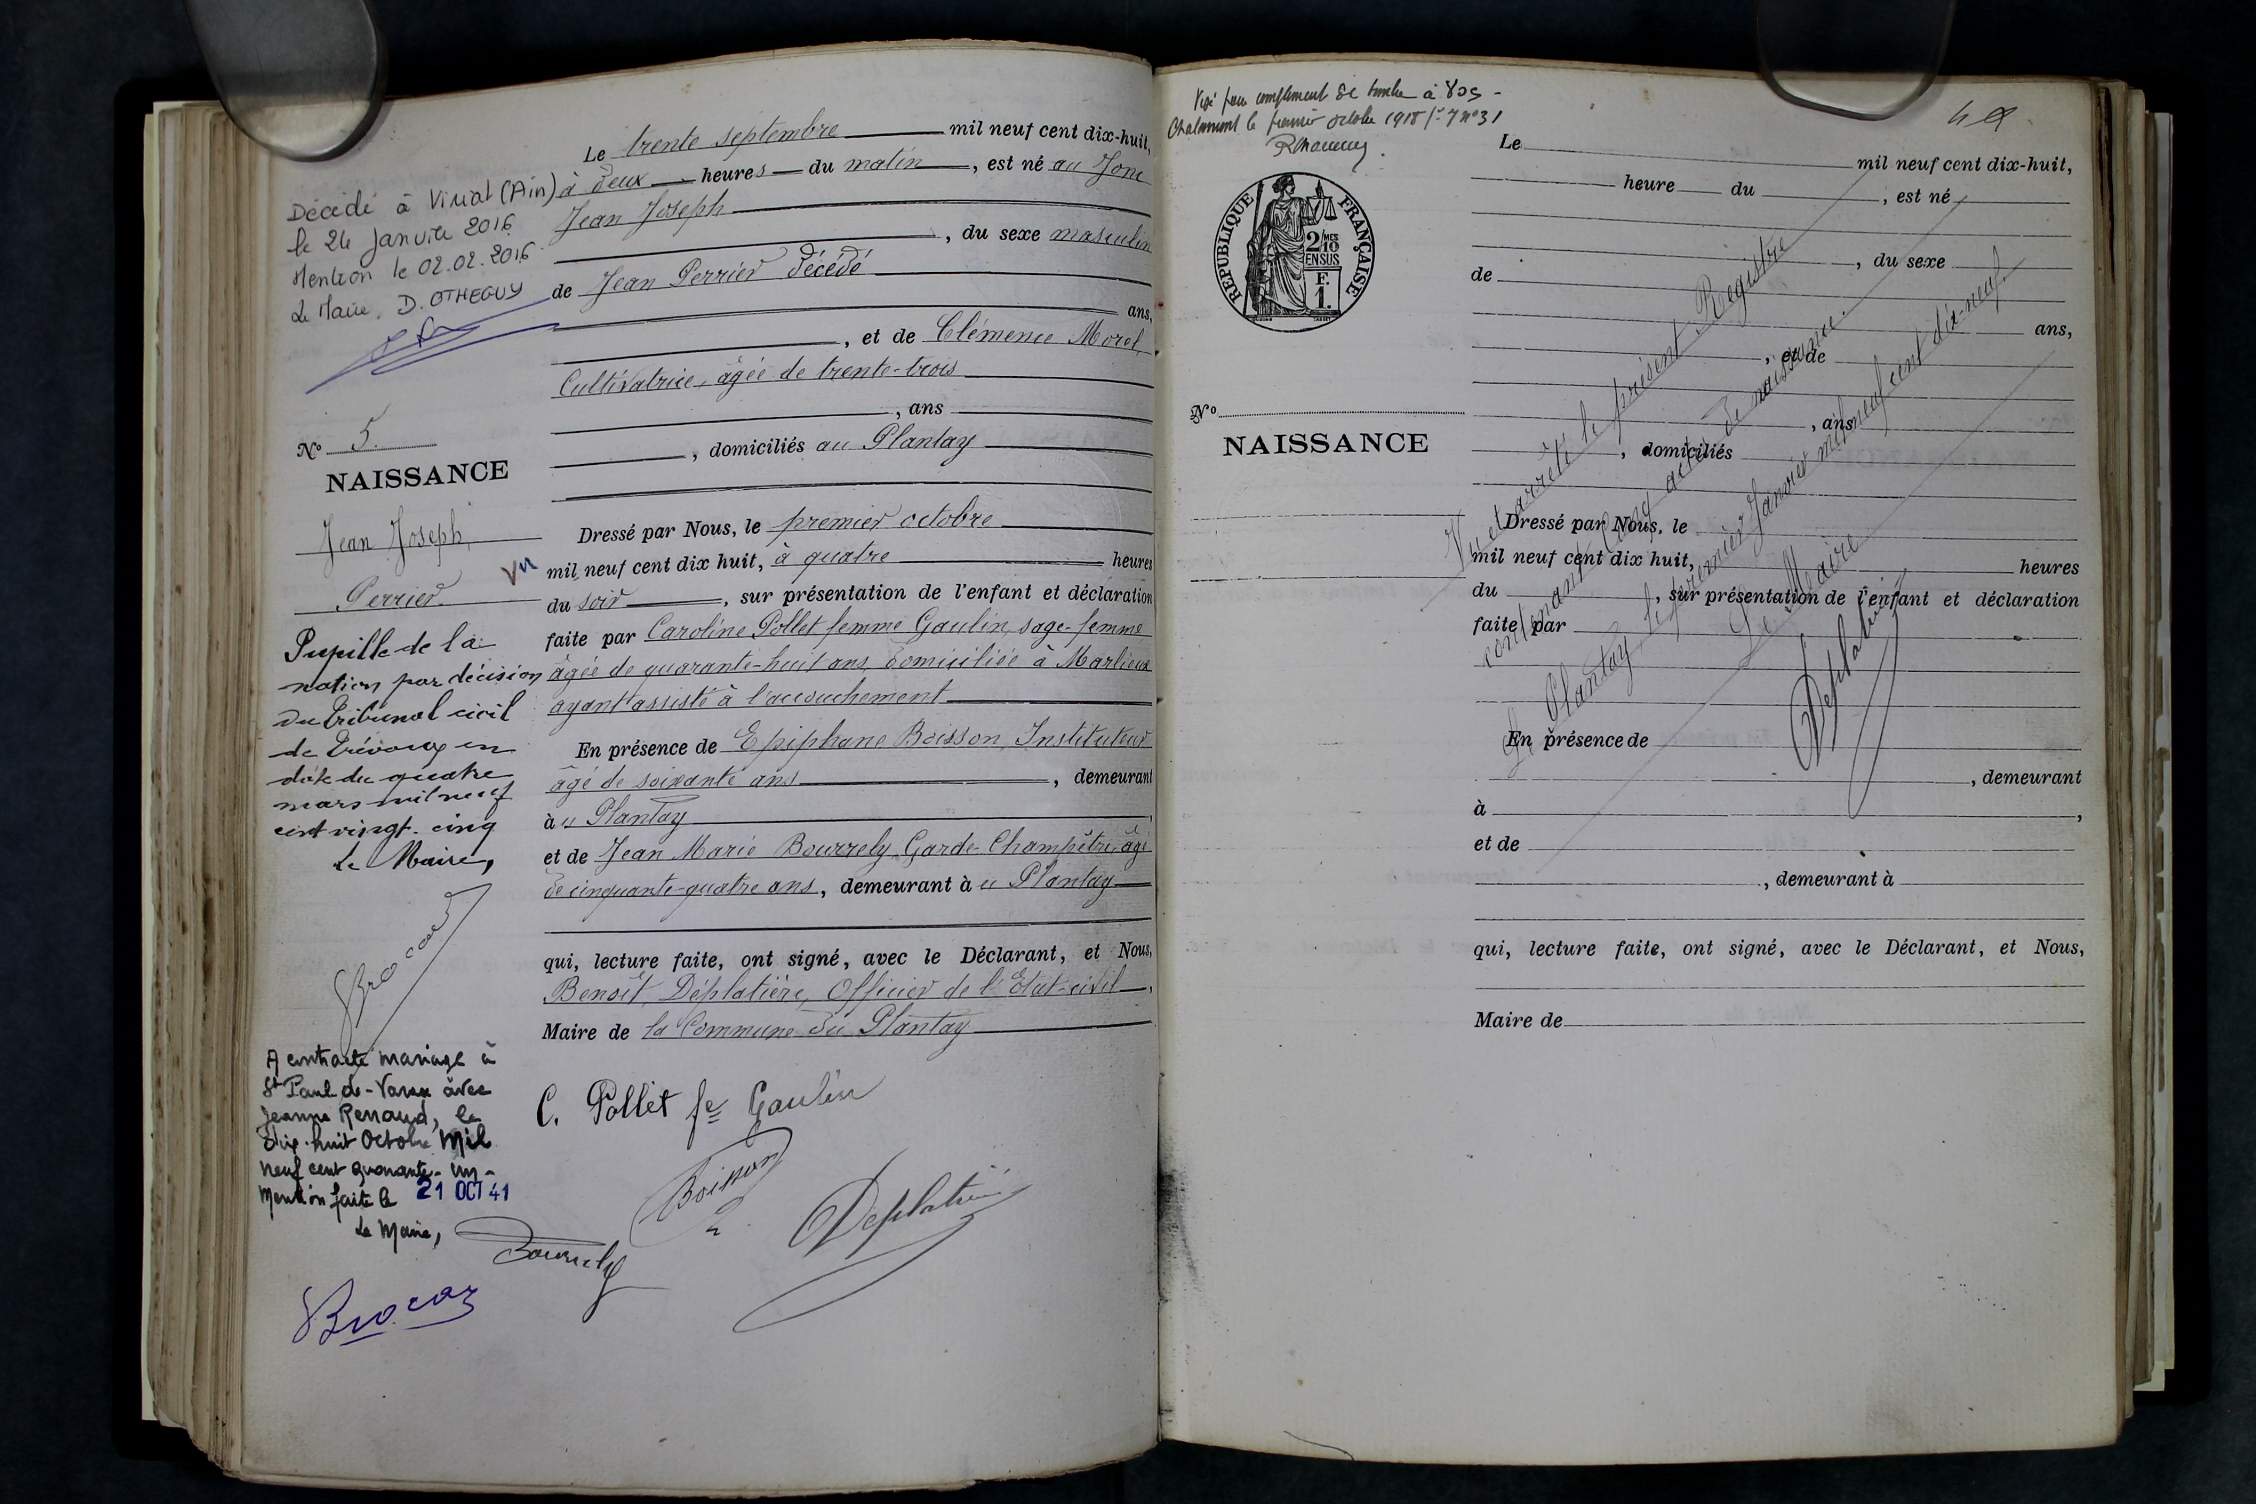 Le trente septembre mil neuf cent dix-huit,
à deux heures du matin, est né au Jonc
Jean Joseph
, du sexe masculin
de Jean Perrier décédé
ans,
, et de Clémence Morel,
Cultivatrice, âgée de trente-trois
, ans
, domiciliés au Plantay
Dressé par Nous, le premier octobre
mil neuf cent dix huit, à quatre heures
du soir, sur présentation de l'enfant et déclaration
faite par Caroline Pollet femme Gaulin, sage-femme
âgée de quarante-huit ans domiciliée à Marlieux
ayant assisté à l'accouchement
En présence de Epiphane Boisson, Instituteur
âgé de soixante ans, demeurant
àu Plantay,
et de Jean Marie Bourrely Garde-Champêtre, âgé
de cinquante-quatre ans, demeurant àu Plantay
qui, lecture faite, ont signé, avec le Déclarant, et Nous,
Benoît Déplatière, Officier de l'Etat-civil,
Maire de la Commune du Plantay
C. Pollet fe Gaulin
Boisson
Bourrely
Déplatière
Décédé à Viriat (Ain)
le 24 Janvier 2016
Mention le 02.02.2016
Le Maire, D. OTHEGUY
No 5.
NAISSANCE
Jean Joseph,
Perrier
Vu
Pupille de la
nation par décision
du tribunal civil
de Trévoux en
date du quatre
mars mil neuf
cent vingt-cinq
Le Maire,
Brocard
A contracté mariage à
St Paul-de-Varax avec
Jeanne Renaud, le
dix-huit Octobre Mil
neuf cent quarante-un-
Mention faite le 21 OCT 41
Le Maire,
Brocard
Visé pour complément de timbre à
Chalamont le premier octobre 1918 f° 7 n° 31
RÉPUBLIQUE FRANÇAISE
2/MES
10
EN SUS
F.
1.
No
NAISSANCE
Le mil neuf cent dix-huit,
heure du , est né
, du sexe
de
ans,
, et de
, ans
, domiciliés
Dressé par Nous, le
mil neuf cent dix huit, heures
du , sur présentation de l'enfant et déclaration
faite par
En présence de
, demeurant
à ,
et de
, demeurant à
qui, lecture faite, ont signé, avec le Déclarant, et Nous,
Maire de
Vu et arrêté le présent Registre
contenant cinq actes de naissance.
Le Plantay, le premier Janvier mil neuf cent dix-neuf
Le Maire
Déplatière